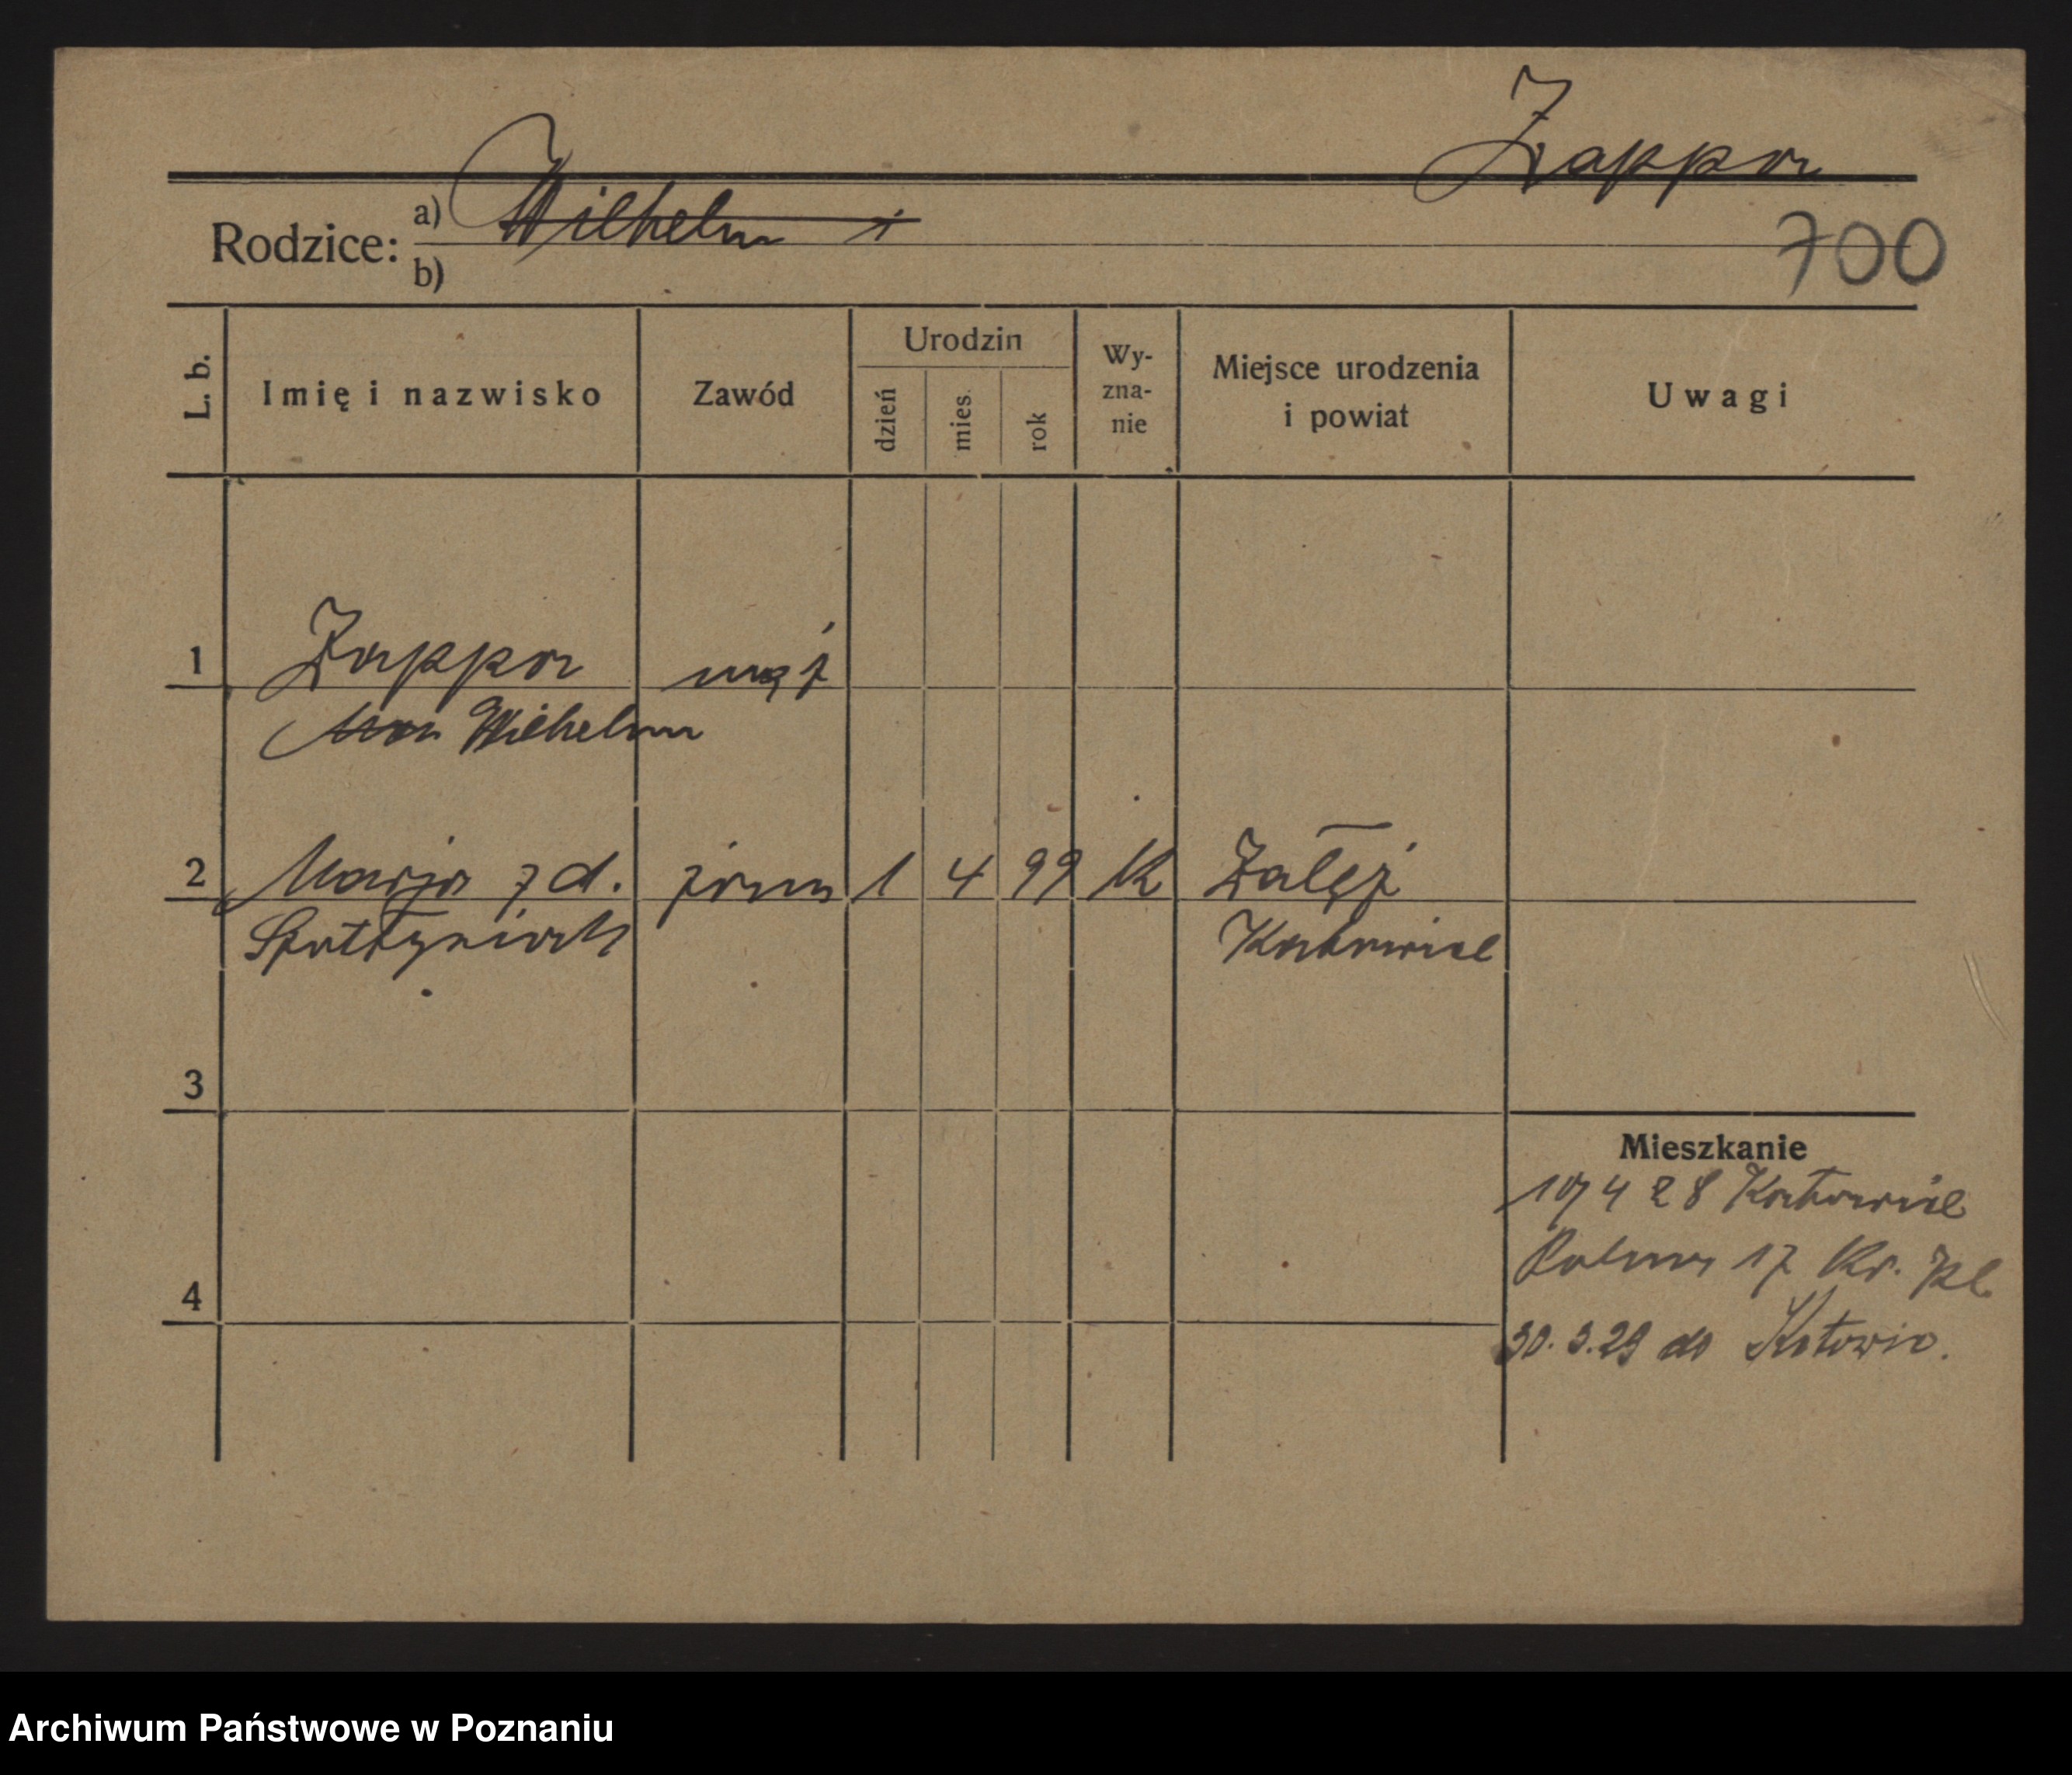 Zappa
Rodzice: a) Wilhelm
b)
700
L. b.
Imię i nazwisko
Zawód
Urodzin
dzień
mies.
rok
Wy-
zna-
nie
Miejsce urodzenia
i powiat
Uwagi
1 Zappa mąż
Wilhelm
2 Marja z d. żona 1 4 99 K Załęż
Katowice
3
4
Mieszkanie
4 28 Katowice
17
30. 3. 29 do Katowic.
Archiwum Państwowe w Poznaniu